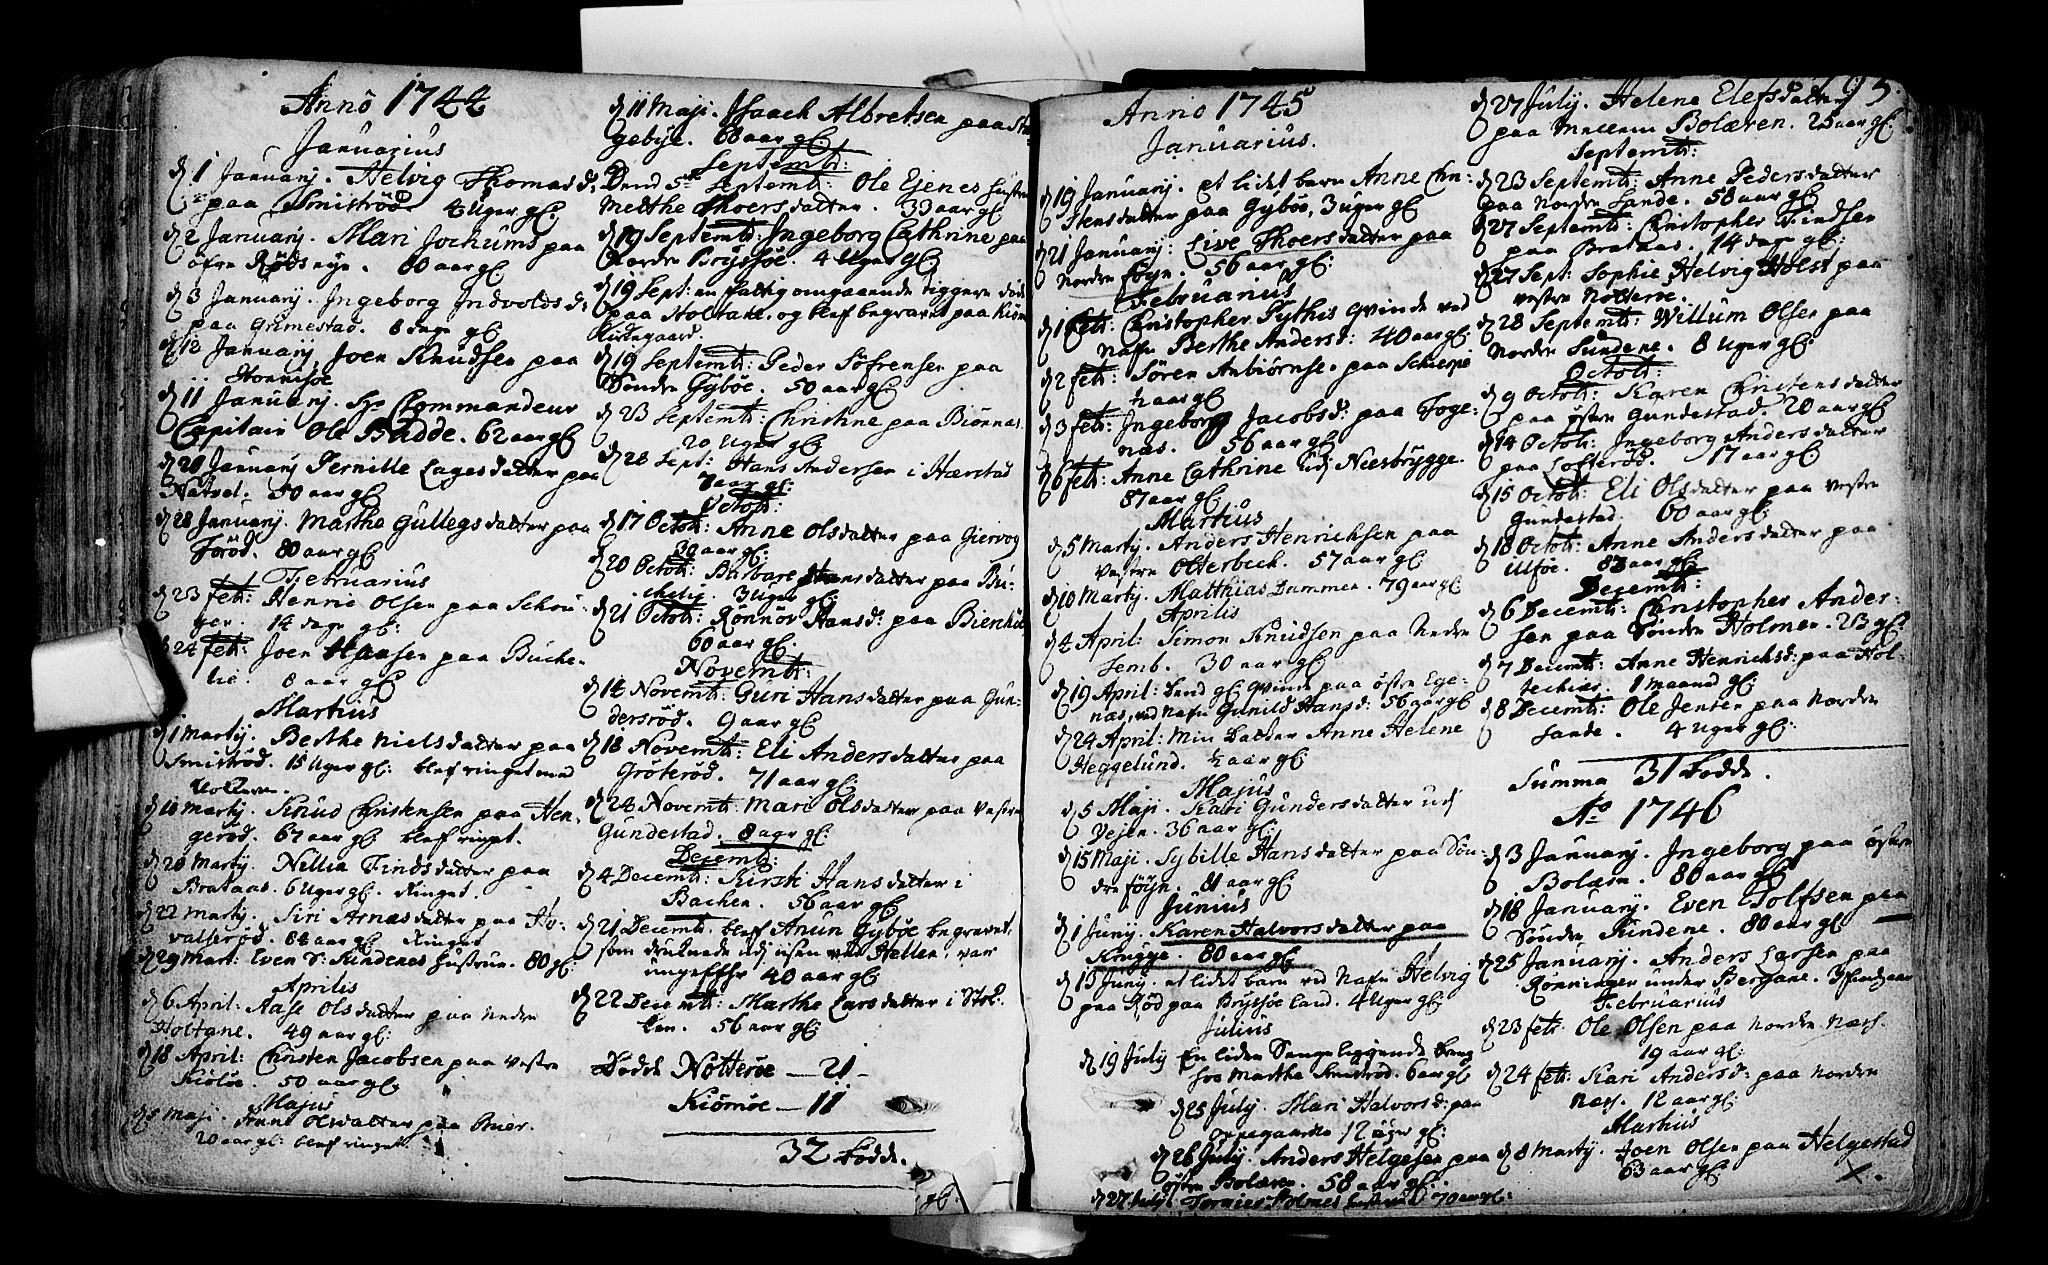 Anno 1744
Januarius
d 1 Januarij. Helvig Thomas d:
paa Smidsrød. 4 Uger gl:
d 2 Januarij. Mari Jochums paa
øfre Rødsnye. 60 aar gl:
d 3 Januarij. Ingeborg Indvolds d:
paa Grimestad. 8 dage gl:
d 12 Januarij. Joen Knudsen paa
d 11 Januarij. Hr Commandeur
Capitain Ole Budde. 62 aar gl
d 20 Januarij Pernille Lagesdatter paa
Natvel. 80 aar gl
d 28 Januarij. Marthe Gullegsdatter paa
Torød. 80 aar gl
Februarius
d 23 febr: Henric Olsen paa Schou
ger. 14 dage gl:
d 24 febr: Joen Hansen paa Buche
lie. 8 aar gl
Martius
d 1 Martij. Berthe Nielsdatter paa
Smidsrød. 15 Uger gl: blef ringet med
d 10 Martij. Knud Christensen paa Hen
gerød. 67 aar gl blef ringet.
d 20 Martij. Nillia Findsdatter paa
Brataas. 6 Uger gl. Ringet
d 22 Martij. Siri Arnesdatter paa Ho
valserød. 84 aar gl. Ringet
d 29 Mart: Even S: Kindenes Hustrue. 80 gl:
Aprilis
d 6 April: Aase Olsdatter paa nedre
Holtane. 49 aar gl:
d 18 April: Christen Jacobsen paa Vestre
Kiøløe. 50 aar gl:
Majus
Maji. Anne Olsdatter paa Buer.
20 aar gl: blef ringet
d 11 Maji. Isaach Albretsen paa
gebye. 68 aar gl:
Septembr:
Dend 5te Septembr: Ole Ejenes hustru
Merthe Thoersdatter. 33 aar gl
d 19 Septembr: Ingeborg Cathrine paa
Nordre Bryssøe. 4 Uger gl
d 19 Sept: en fattig omgaaende tiggere døde
paa Holtane, og blef begravet paa
Kirkegaard.
d 19 Septembr: Peder Søfrensen paa
Søndre Gybøe. 50 aar gl
d 23 Septembr: Christine paa Biønnas
20 Uger gl:
d 28 Sept: Hans Andersen i Hærstad
7 aar gl:
Octobr:
d 17 Octobr: Anne Olsdatter paa Giervog
30 aar gl:
d 20 Octobr: Barbare Hansdatter paa Bu-
chelie. 3 Uger gl:
d 21 Octobr: Rønnøv Hansd: paa Bienhol
60 aar gl:
Novembr:
d 14 Novembr: Guri Hansdatter paa Gun-
dersrød. 9 aar gl:
d 18 Novembr: Eli Andersdatter paa
Grøterød. 71 aar gl:
d 24 Novembr: Mari Olsdatter paa Vestre
Gundestad. 8 aar gl:
Decembr:
d 4 Decembr: Kirsti Hansdatter i
Bachen. 56 aar gl:
d 21 Decembr. blef Anun Gybøe begravet,
som druknede udj iisen ved Hellen, var
ungefehr 40 aar gl
d 22 Decembr: Marthe Larsdatter i Stoc
ken. 56 aar gl:
Døde Nøtterøe — 21
Kiømøe — 11
32 Døde.
gl:
195.
Anno 1745
Januarius.
d 19 Januarij. et lidet barn Anne Chri-
stensdatter paa Gybøe, 3 uger gl
d 21 Januarij: Live Thoersdatter paa
Nordre føyn. 56 aar gl:
Februarius
d 1 febr: Christopher Tythis Qvinde ved
Nafn Berthe Andersd: 40 aar gl
d 2 febr: Søren Anbiørnse. paa Schierpe
½ aar gl
d 3 febr: Ingeborg Jacobsd: paa Foge-
næs. 56 aar gl
d 6 febr: Anne Cathrine udj Neesbrygge.
87 aar gl:
Martius
d 5 Martij. Anders Henrichsen paa
Vestre Otterbech. 57 aar gl:
d 10 Martij. Matthias Dammen. 79 aar gl
Aprilis
d 4 April: Simon Knudsen paa Nedre
Semb. 30 aar gl
d 19 April: Dend gl Qvinde paa østre Ege-
næs, ved Nafn Gunild Hansd: 56 aar gl
d 24 April: Min Datter Anne Helene
Heggelund. ½ aar gl:
Majus
d 5 Maji. Kari Gundersdatter udj
Vejen. 36 aar gl:
d 15 Maji. Sybille Hansdatter paa Søn-
dre føyn. 81 aar gl
Junius
d 1 Junij. Karen Halvorsdatter paa
Krugge. 80 aar gl
d 13 Junij. et lidet barn ved Nafn Helvig
paa Rød paa Bryssøe land. 4 Uger gl
Julius
d 19 July En liden Senge liggende
hos Marthe Smidsrød. 6 aar gl
d 25 July. Mari Halvorsd: paa
Oppegaarden 12 uger gl:
d 26 July. Anders Helgesen paa
østre Bolæren. 58 aar gl:
d 27 July. Torgiers Holmes hustrue 70 aar gl:
d 27 July. Helene Elefsdatter
paa Mellem Bolæren. 25 aar gl:
Septembr:
d 23 Septembr: Anne Pedersdatter
paa Nordre Sande. 58 aar gl
d 27 Septembr: Christopher Findsen
paa Brataas. 14 dage gl:
d 27 Sept: Sophie Helvig Holst paa
vestre Nøtterøe.
d 28 Septembr: Willum Olsen paa
Nordre Sundene. 8 Uger gl:
Octobr:
d 9 Octobr: Karen Christensdatter
paa østre Gundestad. 20 aar gl
d 14 Octobr: Ingeborg Andersdatter
paa Lofterød. 17 aar gl
d 15 Octobr: Eli Olsdatter paa vestre
Gundestad. 60 aar gl:
d 18 Octobr: Anne Andersdatter paa
Ulføe. 83 aar gl:
Decembr:
d 6 Decembr: Christopher Ander-
sen paa Søndre Holmen. 23 gl:
d 7 Decembr: Anne Henrichsd: paa Hol-
techier. 1 maaned gl:
d 8 Decembr: Ole Jensen paa Nordre
Sande. 4 Uger gl:
Summa 31 Døde.
Ao 1746
d 3 Januarij. Ingeborg paa østre
Bolæren. 86 aar gl:
d 18 Januarij. Even Rolfsen paa
Søndre Kindene. 80 aar gl
d 25 Januarij. Anders Larsen paa
Rønningen under Bergane.
Februarius
d 23 febr: Ole Olsen paa Nordre Næss.
19 aar gl:
d 24 febr: Kari Andersd: paa Nordre
Næss. 12 aar gl:
Martius
d 8 Martij. Joen Olsen paa Helgestad
63 aar gl: